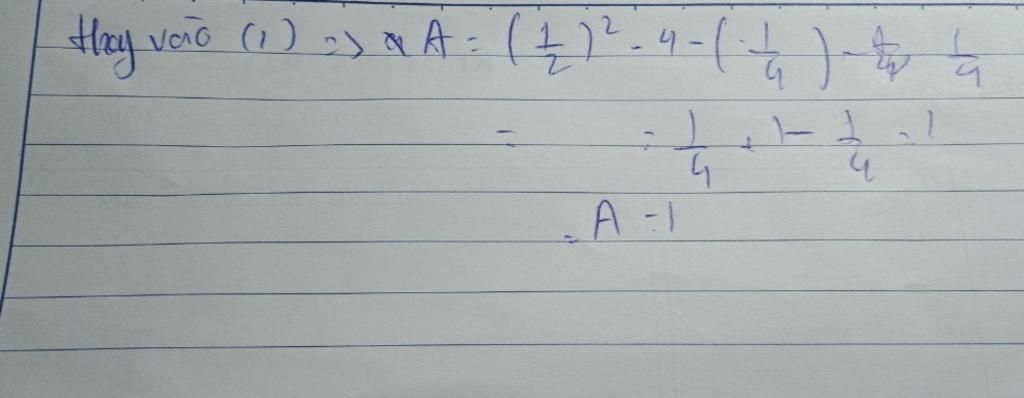 thay vào (1) => A = (1/2)² - 4 - (-1/4) - 1/4
= = 1/4 + 1 - 1/4 = 1
= A = 1